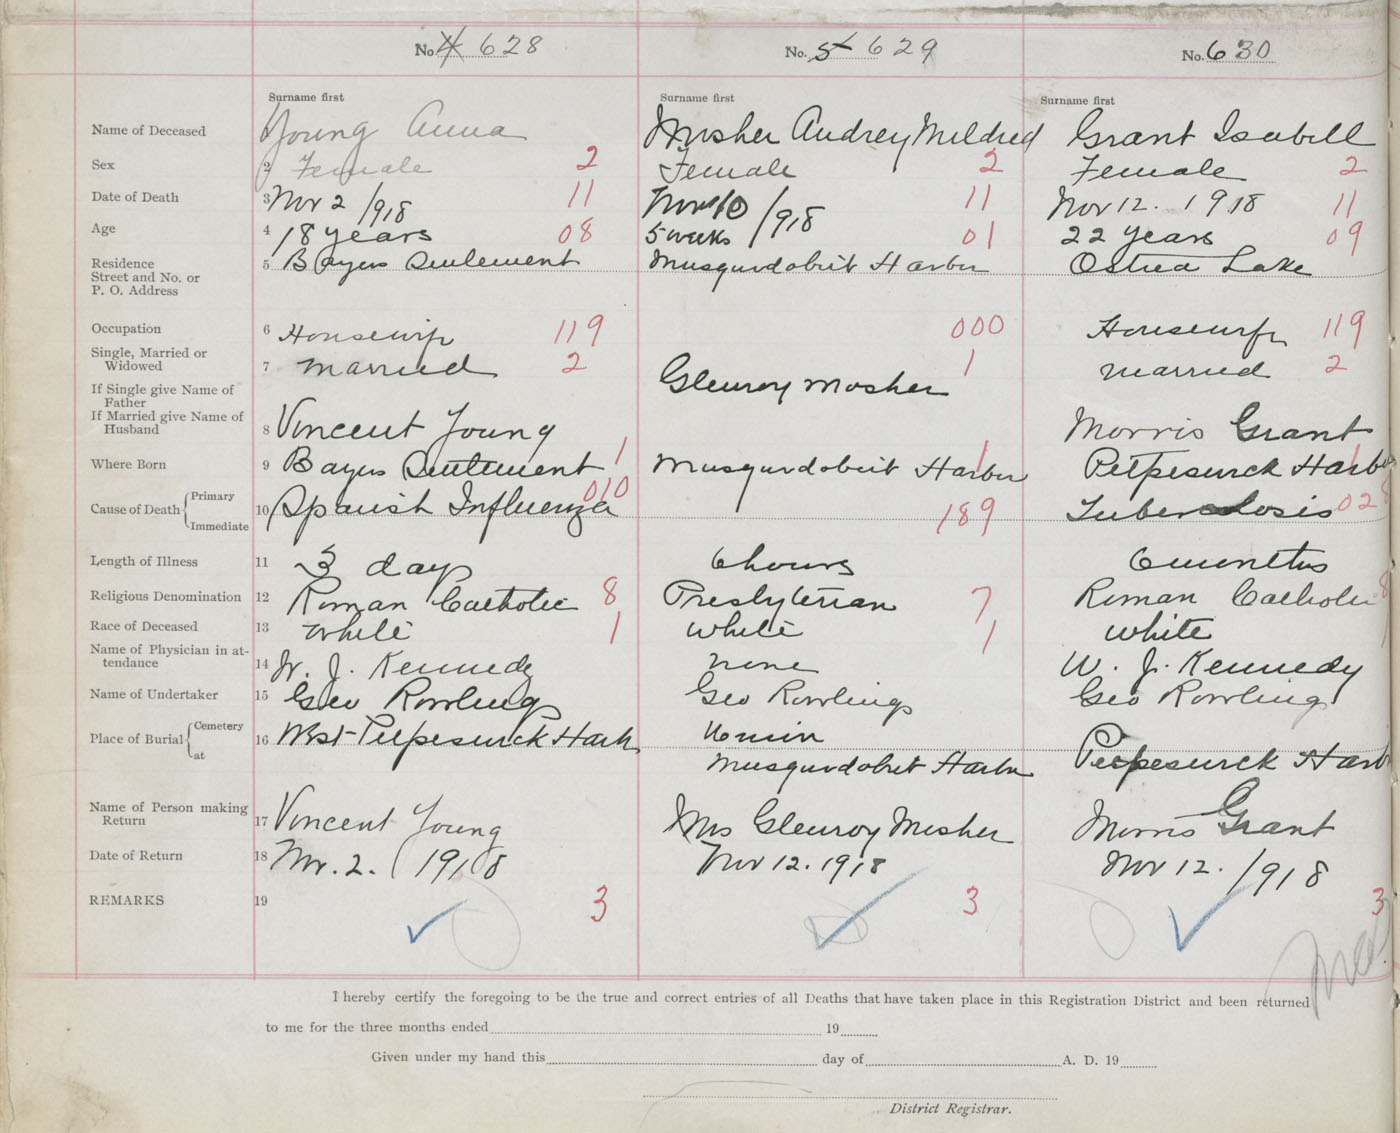 No. 4 628 No. 5 629 No. 630
Surname first Surname first Surname first
Name of Deceased Young Anna Mosher Audrey Mildred Grant Isabell
Sex 2 Female 2 Female 2 Female 2
Date of Death 3 Nov 2 /918 11 Nov 10 /918 11 Nov 12. 1918 11
Age 4 18 years 08 5 weeks 01 22 years 09
Residence
Street and No. or 5 Bayers Settlement Musquodoboit Harbor Ostrea Lake
P. O. Address
Occupation 6 Housewife 119 000 Housewife 119
Single, Married or
Widowed 7 married 2 1 married 2
If Single give Name of
Father Glenroy Mosher
If Married give Name of
Husband 8 Vincent Young Morris Grant
Where Born 9 Bayers Settlement 1 Musquodoboit Harbor 1 Petpeswick Harbor 1
Cause of Death Primary 10 Spanish Influenza 010 189 Tuberculosis 028
Immediate
Length of Illness 11 3 days 6 hours 6 months
Religious Denomination 12 Roman Catholic 8 Presbyterian 7 Roman Catholic 8
Race of Deceased 13 White 1 White 1 White 1
Name of Physician in at-
tendance 14 W. J. Kennedy none W. J. Kennedy
Name of Undertaker 15 Geo Rowlings Geo Rowlings Geo Rowlings
Place of Burial Cemetery 16 West Petpeswick Harb Union Petpeswick Harb
at Musquodoboit Harbor
Name of Person making
Return 17 Vincent Young Mrs Glenroy Mosher Morris Grant
Date of Return 18 Nov. 2. 1918 Nov 12. 1918 Nov 12. /918
REMARKS 19 3 3 3
I hereby certify the foregoing to be the true and correct entries of all Deaths that have taken place in this Registration District and been returned
to me for the three months ended 19
Given under my hand this day of A. D. 19
District Registrar.